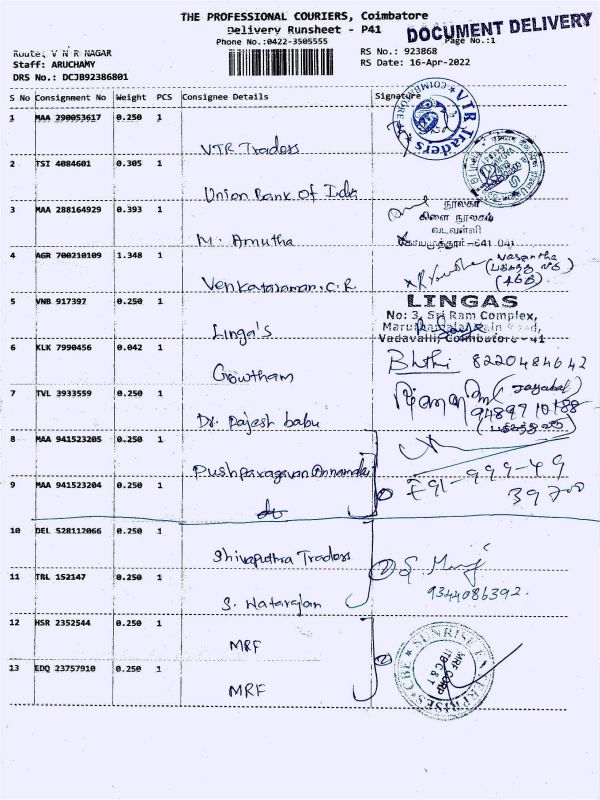 THE PROFESSIONAL COURIERS, Coimbatore
DOCUMENT DELIVERY
Delivery Runsheet - P41
Phone No.:0422-3505555
Page No.:1
Route: V N R NAGAR
RS No.: 923868
Staff: ARUCHAMY
RS Date: 16-Apr-2022
DRS No.: DCJB92386801
S No Consignment No Weight PCS Consignee Details Signature
1 MAA 290053617 0.250 1
VTR Traders
VTR Traders
COIMBATORE
2 TSI 4084601 0.305 1
Union Bank Of India
3 MAA 288164929 0.393 1
M. Amutha
நூலகர்
கிளை நூலகம்
வடவள்ளி
கோயமுத்தூர் -641 041
4 AGR 700210109 1.348 1
Venkataraman. C. R.
Vasantha
(பக்கத்து வீடு)
5 VNB 917397 0.250 1
Linga's
LINGAS
No: 3, Sri Ram Complex,
Maruthamalai Main Road,
Vadavalli, Coimbatore - 41
6 KLK 7990456 0.042 1
Gowtham
8220484642
7 TVL 3933559 0.250 1
Dr. Rajesh babu
9489710188
8 MAA 941523205 0.250 1
Pushparagavan Annamalai
9 MAA 941523204 0.250 1
do
2
10 DEL 528112066 0.250 1
Shivaputhra Traders
11 TRL 152147 0.250 1
S. Natarajan
2
9344086392.
12 HSR 2352544 0.250 1
MRF
13 EDQ 23757910 0.250 1
MRF
2
SUNRISE ENTERPRISES CBE
MRF CORP